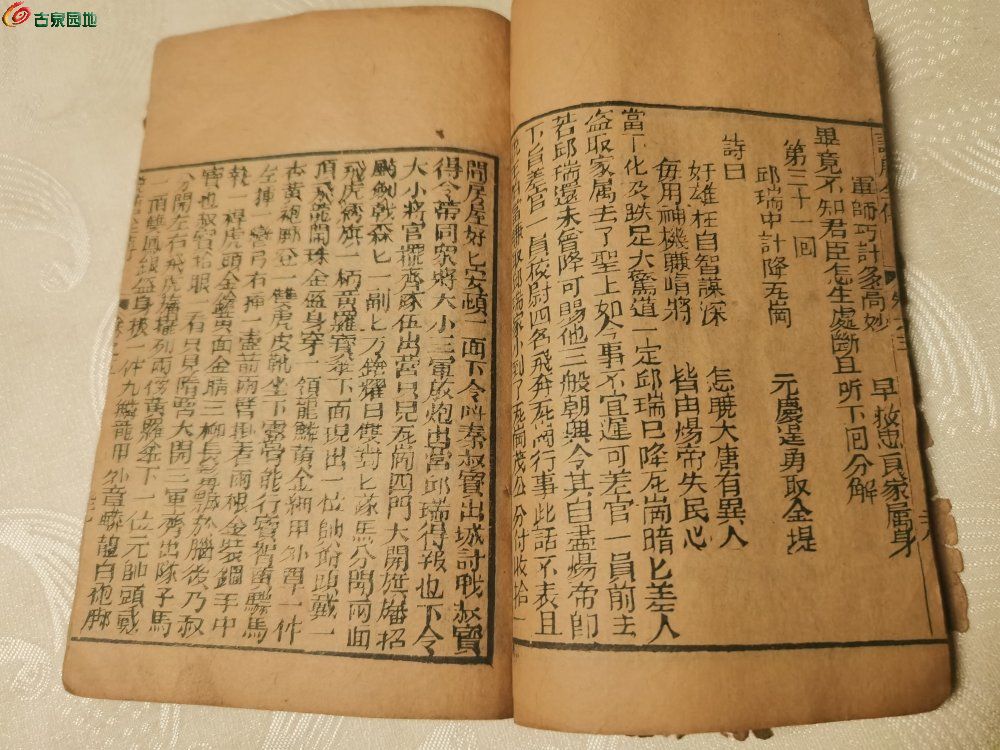 古泉园地
軍師巧計多高妙 早救忠良家属身
畢竟不知君臣怎生處斷且 听下回分解
第三十一回
邱瑞中計降瓦崗 元慶逞勇取金堤
詩曰
奸雄枉自智謀深 怎曉大唐有異人
毎用神機賺哨將 皆由煬帝失民心
當下化及跌足大驚道一定邱瑞已降瓦崗暗匕差人
盗取家属去了聖上如今事不宜遲可差官一員前去
若邱瑞還未曾降可賜他三般朝典令其自盡煬帝即
下旨差官一員校尉四名飛奔瓦崗行事此話不表且
間房屋好匕安頓一面下令叫秦叔寳出城討戰叔寳
得令帶同衆將大小三軍放炮出營邱瑞得報也下令
大小將官擺齊隊伍出營只見瓦崗四門大開旗旛招
颭劍戟森匕一副匕刀鎗耀日雙對匕隊馬分開兩面
飛虎綉旗一柄黄羅寳傘下面現出一位帥爺頭戴一
頂飛龍開珠金盔身穿一領龍鱗黄金細甲外罩一件
杏黄袍脚登一雙虎皮靴坐下
左揷一張弓右揷一壺箭兩臂掛着兩根金装鐧手中
執一桿虎頭金鎗黄面金睛三柳長鬚飄於腦後乃叔
寳也叔寳抬眼一看只見隋營大開三軍齊出隊子馬
分開左右飛虎旗擺列兩傍黄羅傘下一位元帥頭戴
一頂雙鳳銀盔身穿一件九鱗龍甲外罩 龍白袍脚